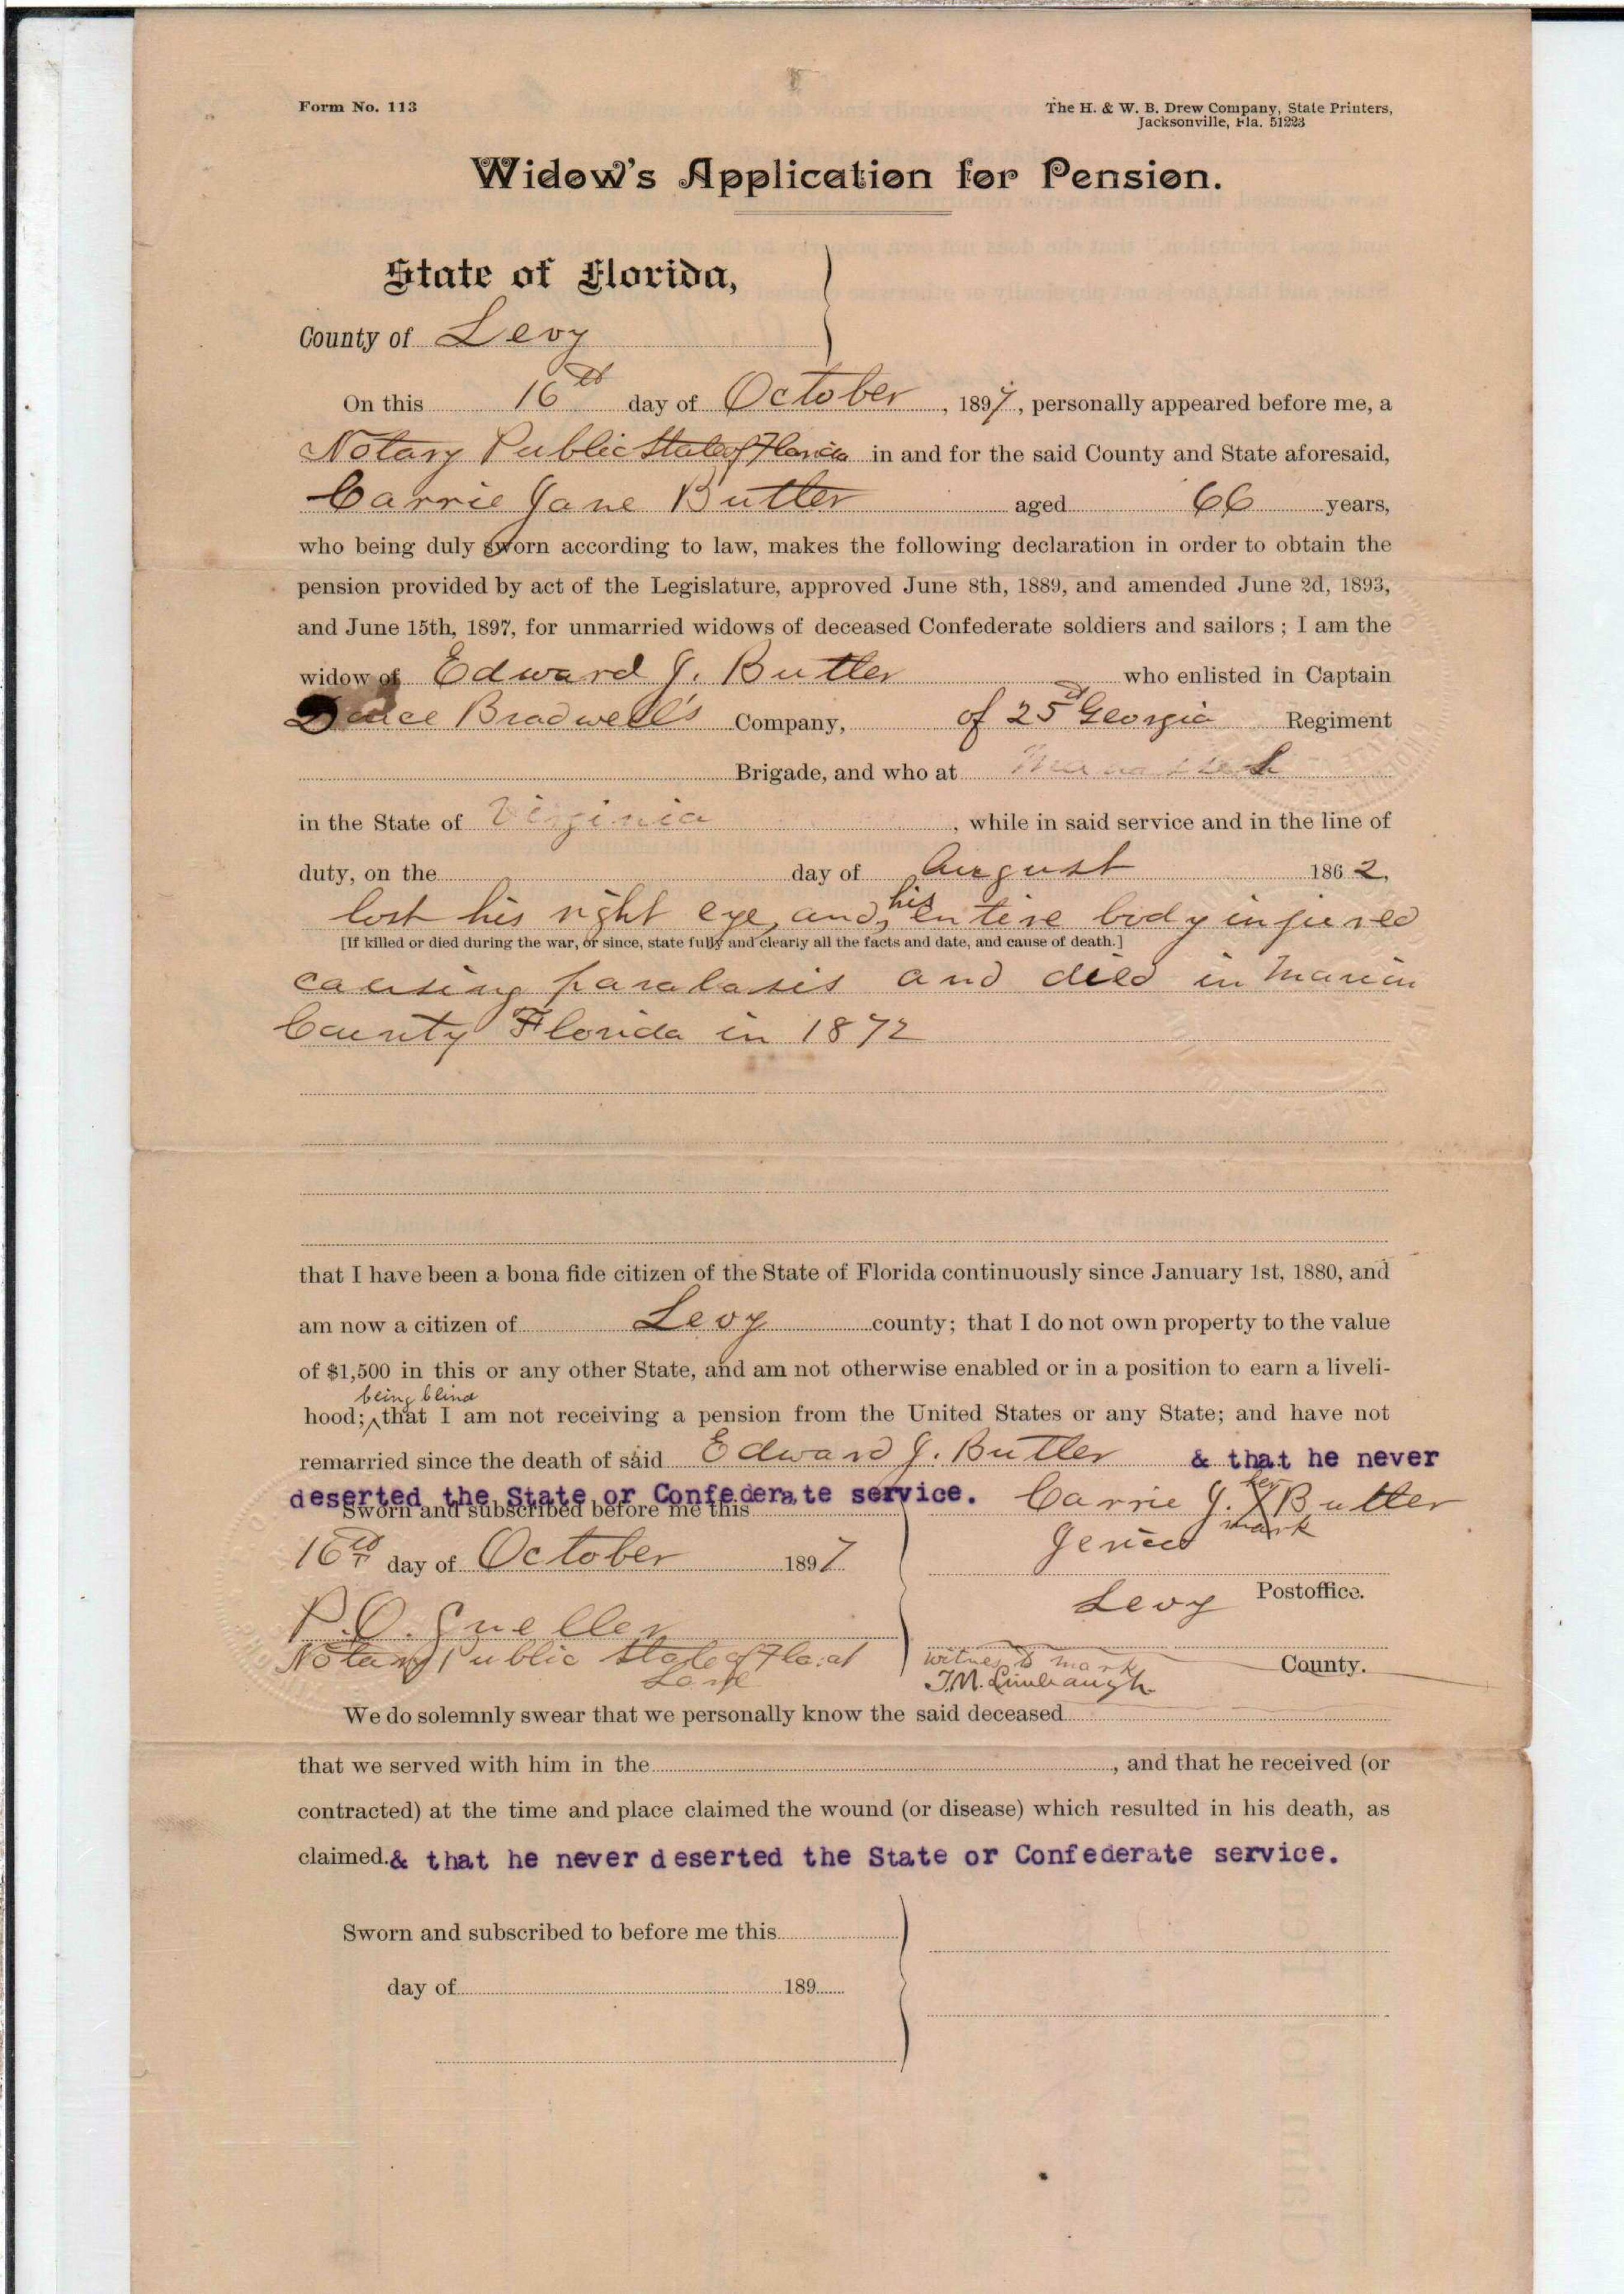 Form No. 113
The H. & W. B. Drew Company, State Printers,
Jacksonville, Fla. 51223
Widow's Application for Pension.
State of Florida,
County of Levy
On this 16th day of October, 1897, personally appeared before me, a
Notary Public State of Florida in and for the said County and State aforesaid,
Carrie Jane Butler aged 66 years,
who being duly sworn according to law, makes the following declaration in order to obtain the
pension provided by act of the Legislature, approved June 8th, 1889, and amended June 2d, 1893,
and June 15th, 1897, for unmarried widows of deceased Confederate soldiers and sailors ; I am the
widow of Edward J. Butler who enlisted in Captain
Bradwell's Company, of 25th Georgia Regiment
Brigade, and who at
in the State of Virginia, while in said service and in the line of
duty, on the day of August 1862,
lost his right eye, and his entire body injured
[If killed or died during the war, or since, state fully and clearly all the facts and date, and cause of death.]
causing paralasis and died in Marion
County Florida in 1872
that I have been a bona fide citizen of the State of Florida continuously since January 1st, 1880, and
am now a citizen of Levy county; that I do not own property to the value
of $1,500 in this or any other State, and am not otherwise enabled or in a position to earn a liveli-
being blind
hood; that I am not receiving a pension from the United States or any State; and have not
remarried since the death of said Edward J. Butler & that he never
deserted the State or Confederate service. Carrie J. her X mark Butler
Sworn and subscribed before me this
16th day of October 1897
Levy Postoffice.
Notary Public State of Fla. at
Large
witness to mark
County.
We do solemnly swear that we personally know the said deceased
that we served with him in the, and that he received (or
contracted) at the time and place claimed the wound (or disease) which resulted in his death, as
claimed. & that he never deserted the State or Confederate service.
Sworn and subscribed to before me this
day of 189